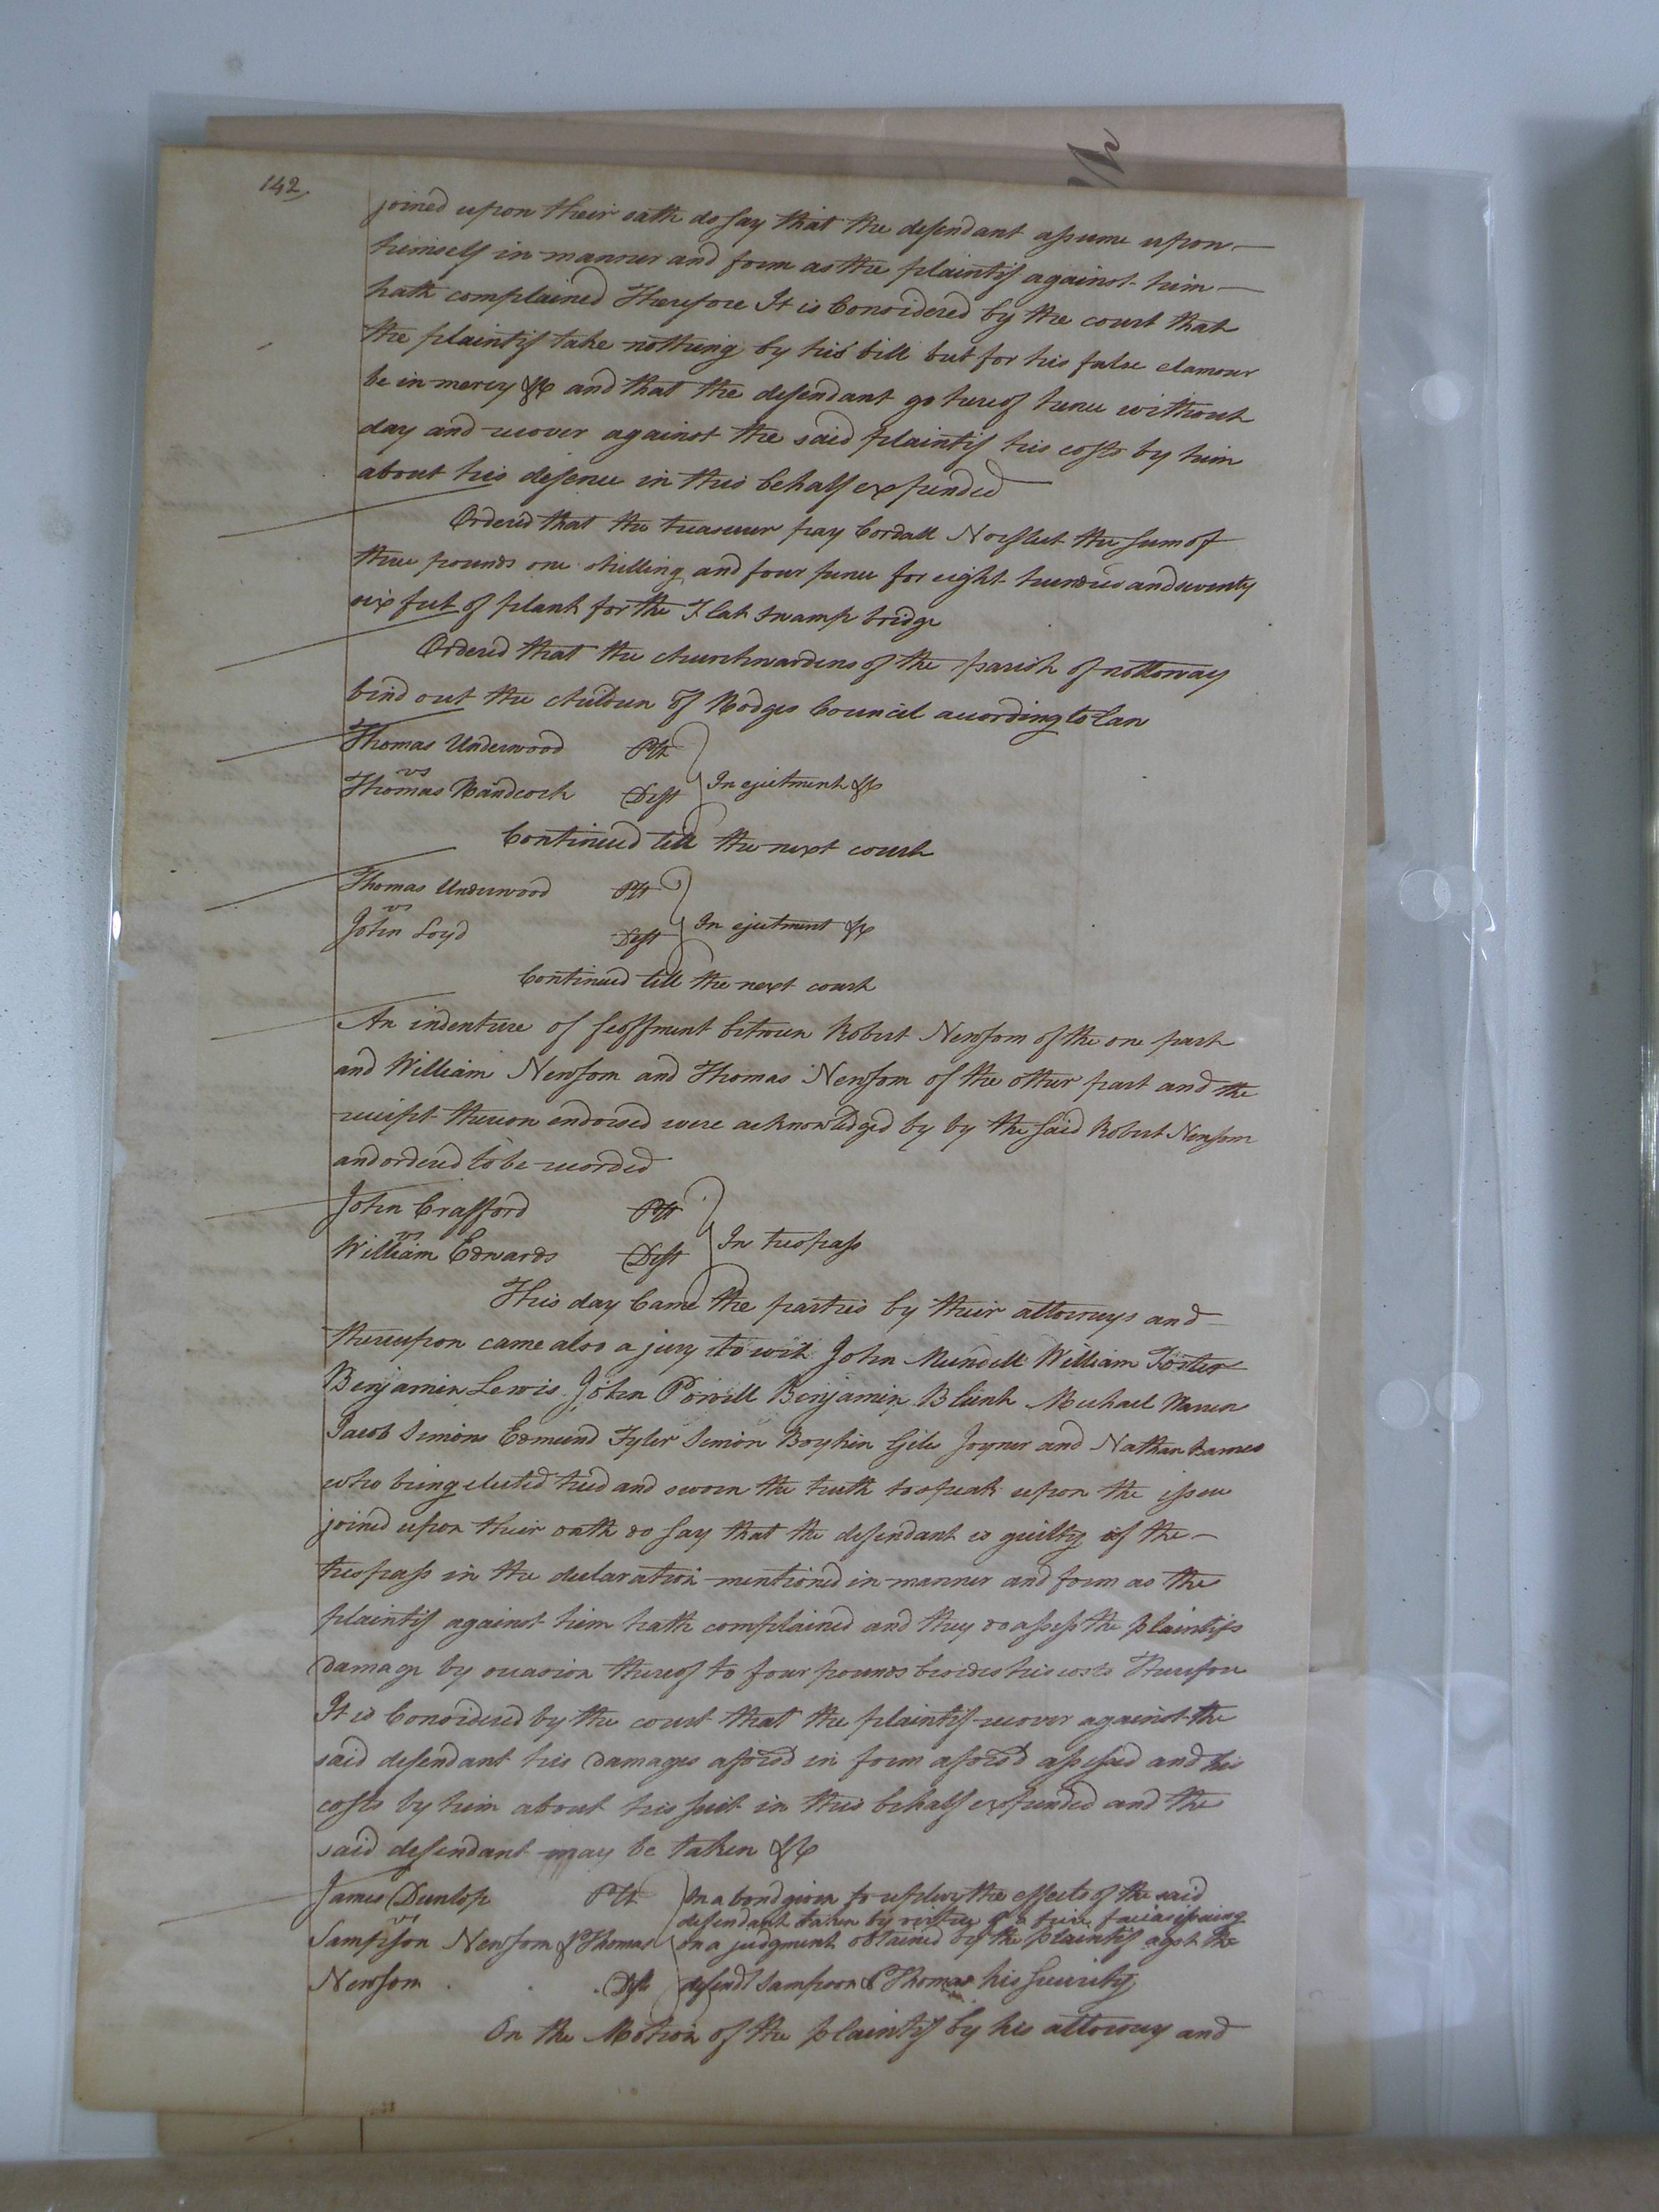 142,
joined upon their oath do say that the defendant assume upon
himself in manner and form as the plaintif against him
hath complained Therefore It is Considered by the court that
the plaintif take nothing by his bill but for his false clamour
be in mercy &c and that the defendant go hereof hence without
day and recover against the said plaintif his costs by him
about his defence in this behalf expended
Ordered that the treasurer pay Cordall Norfleet the sum of
three pounds one shilling and four pence for eight hundred and seventy
six feet of plank for the Flat swamp bridge
Ordered that the churchwardens of the parish of nottoway
bind out the children of Hodges Council according to Law
Thomas Underwood Plt
vs
Thomas Handcock Deft
In ejectment &c
Continued till the next court
Thomas Underwood Plt
vs
John Loyd Deft
In ejectment &c
Continued till the next court
An indenture of feoffment between Robert Newsom of the one part
and William Newsom and Thomas Newsom of the other part and the
receipt thereon endorsed were acknowledged by by the said Robert Newsom
and ordered to be recorded
John Crafford Plt
vs
William Edwards Deft
In trespass
This day Came the parties by their attorneys and
thereupon came also a jury to wit John Mundell William Foster
Benjamin Lewis John Powell Benjamin Blunt Michael Warren
Jacob Simons Edmund Tyler Simon Boykin Giles Joyner and Nathan Barnes
who being elected tried and sworn the truth to speak upon the issue
joined upon their oath do say that the defendant is guilty of the
trespass in the declaration mentioned in manner and form as the
plaintif against him hath complained and they do assess the plaintifs
damage by occasion thereof to four pounds besides his costs Therefore
It is Considered by the court that the plaintif recover against the
said defendant his damages aforesd in form aforesd assessed and his
costs by him about his suit in this behalf expended and the
said defendant may be taken &c
James Dunlop Plt
vs
Sampson Newsom & Thomas
Newsom Deft
On a bond given to replevy the effects of the said
defendant taken by virtue of a fieri facias issuing
on a judgment obtained by the plaintif agst the
defendt Sampson & Thomas his security
On the Motion of the plaintif by his attorney and